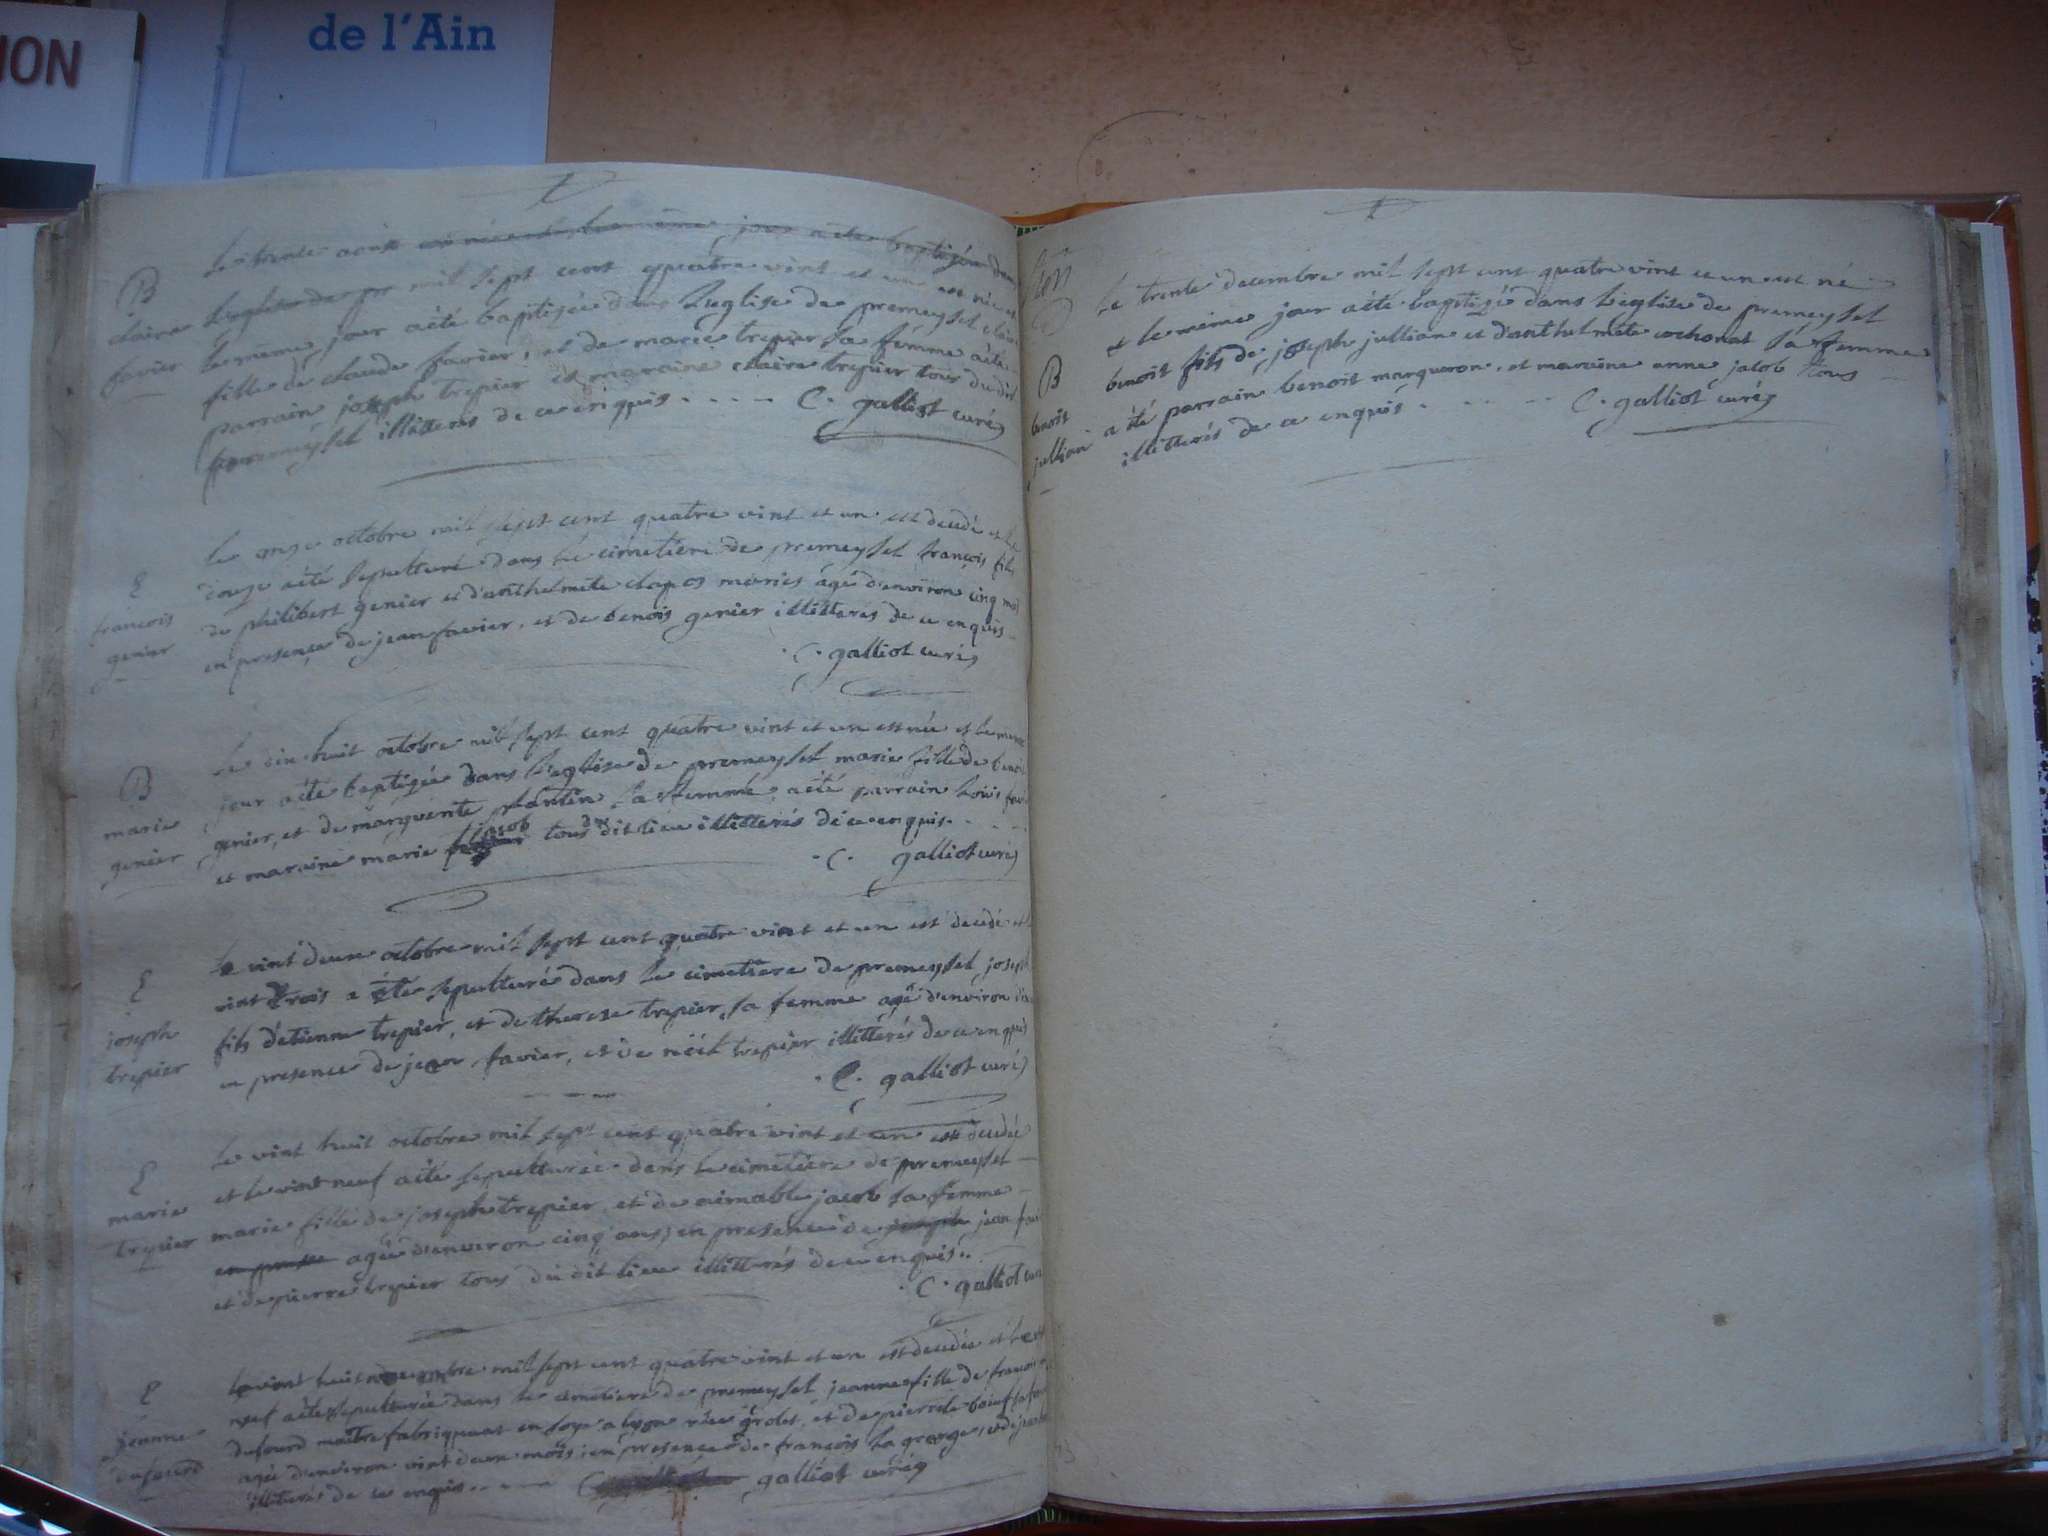 ION
de l'Ain
B
claire
favier
Le trente août est née et le même jour a été baptisée dans
L'eglise de pr mil sept cent quatre vint et un est née et
le même jour a été baptisée dans L'eglise de premeysel claire
fille de claude favier, et de marie trepier sa femme a été
parrain joseph trepier et maraine claire trepier tous du dit
premeysel illiteres de ce enquis . . . . C. galliot curé
E
francois
genier
le onze octobre mil sept cent quatre vint et un est decedé et le
douze a été sepulturé dans le cimetiere de premeysel françois fils
de philibert genier et d'anthelmette clapos mariés âgé d'environ cinq mois
en presence de jean favier, et de benois genier illitteres de ce enquis
. C. galliot curé
B
marie
genier
Le dix huit octobre mil sept cent quatre vint et un est née et le meme
jour a été baptizée dans L'eglise de premeysel marie fille de benoit
genier, et de marguerite plantin sa femme, a été parrain Loüis
et maraine marie jacob tous du dit lieu illitterés de ce enquis. . . .
. C. galliot curé
E
joseph
trepier
le vint deux octobre mil sept cent quatre vint et un est decedé et le
vint trois a été sepulturé dans le cimetiere de premeysel joseph
fils d'etienne trepier, et de therese trepier sa femme agé d'environ
en presence de jean favier, et de noël trepier illittérés de ce enquis
. C. galliot curé
E
marie
trepier
le vint huit octobre mil sept cent quatre vint et un est decedée
et le vint neuf a été sepulturée dans le cimetiere de premeysel
marie fille de joseph trepier, et de aimable jacob sa femme
en presence agée d'environ cinq ans, en presence de joseph jean
et de pierre trepier tous du dit lieu illitterés de ce enquis . .
. C. galliot curé
E
jeanne
dufourd
le vint huit novembre mil sept cent quatre vint et un est decedée et le
neuf a été sepulturée dans le cimetiere de premeysel jeanne fille de francois
dufourd maître fabriquant en soye a lyon rüe grolet, et de pierrete boeuf sa
agée d'environ vint deux mois, en presence de françois la george, et de jean
illiteres de ce enquis . . . . C. galliot curé
B
benoit
jullian
Le trente decembre mil sept cent quatre vint et un est né
et le même jour a été baptizé dans L'eglise de premeysel
benoit fils de joseph jullian et d'anthelmete cochonat sa femme
a été parrain benoit marqueron, et maraine anne jacob tous
illitterés de ce enquis . . . . C. galliot curé